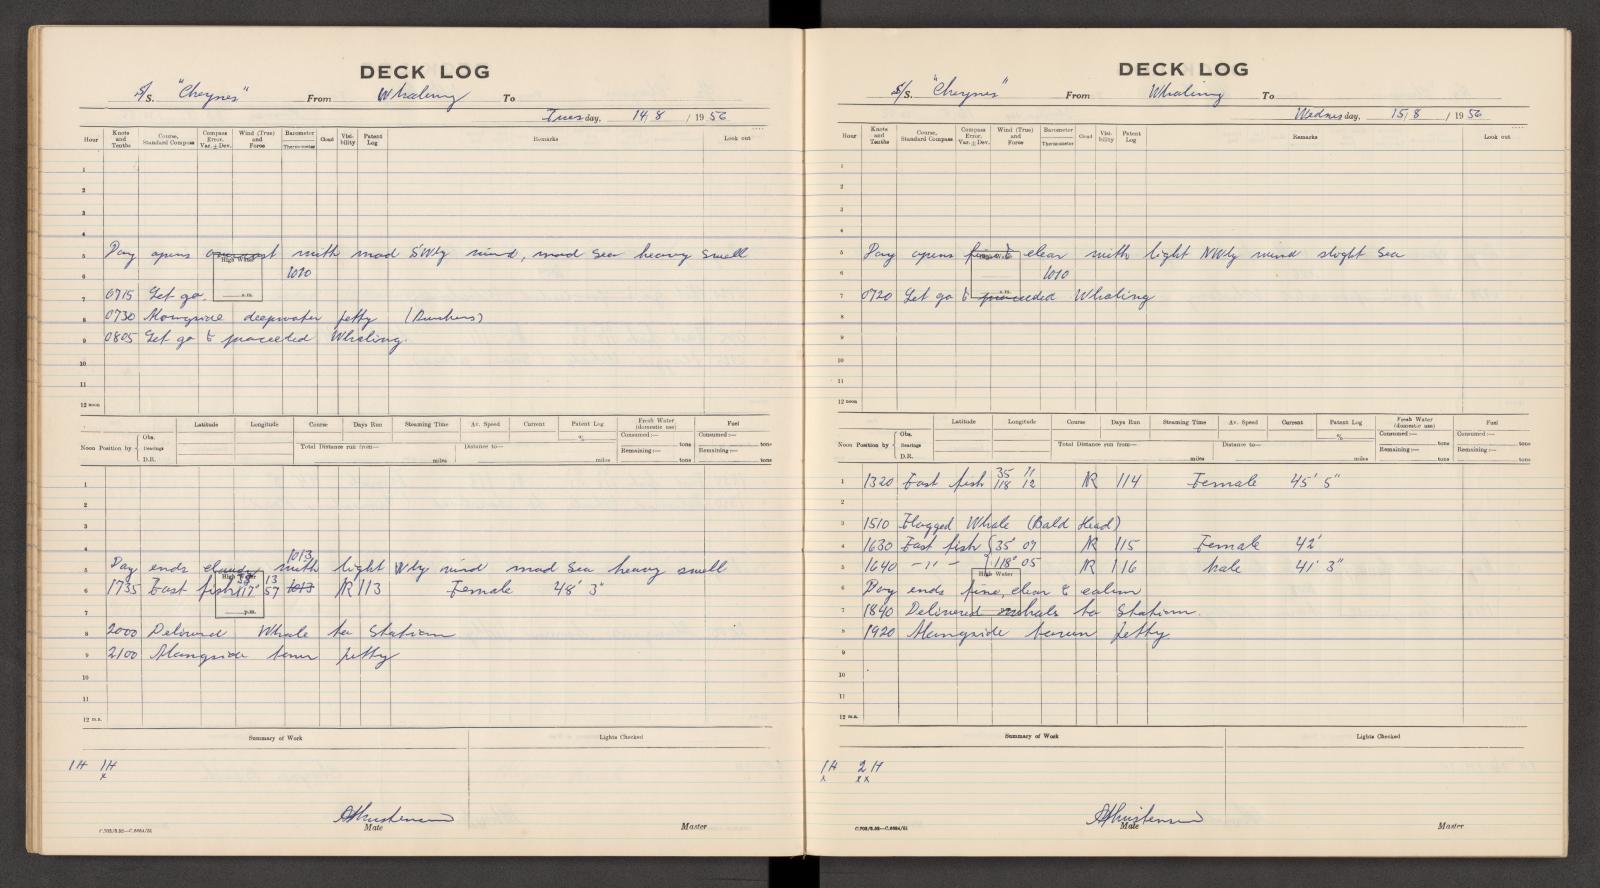 DECK LOG
S/S. "Cheynes" From Whaling To
Tuesday, 14/8 / 1956
Hour Knots and Tenths Course, Standard Compass Compass Error, Var. ± Dev. Wind (True) and Force Barometer Thermometer Cloud Visibility Patent Log Remarks Look out
1
2
3
4
5 Day opens overcast with mod S'Wly wind, mod sea heavy swell
High Water
6 1010
7 0715 Let go. a.m.
8 0730 Alongside deepwater jetty (Bunkers)
9 0805 Let go & proceeded Whaling.
10
11
12 noon
Latitude Longitude Course Days Run Steaming Time Av. Speed Current Patent Log Fresh Water (domestic use) Fuel
Noon Position by Obs. Bearings D.R. Total Distance run from— miles Distance to— miles % Consumed:— tons Remaining:— tons Consumed:— tons Remaining:— tons
1
2
3
4 1013
5 Day ends cloudy with light Wly wind mod sea heavy swell
High Water
6 1735 Fast fish 35 13 117° 57 1013 NR 113 Female 48' 3"
7 p.m.
8 2000 Delivered Whale to Station
9 2100 Alongside town jetty
10
11
12 m.n.
Summary of Work Lights Checked
1H 1H
x
AChristensen
Mate Master
C.702/5.52—C.8694/51
DECK LOG
S/S. "Cheynes" From Whaling To
Wednesday, 15/8 / 1956
Hour Knots and Tenths Course, Standard Compass Compass Error, Var. ± Dev. Wind (True) and Force Barometer Thermometer Cloud Visibility Patent Log Remarks Look out
1
2
3
4
5 Day opens fine & clear with light NWly wind slight sea
High Water
6 1010
7 0720 Let go & proceeded Whaling
a.m.
8
9
10
11
12 noon
Latitude Longitude Course Days Run Steaming Time Av. Speed Current Patent Log Fresh Water (domestic use) Fuel
Noon Position by Obs. Bearings D.R. Total Distance run from— miles Distance to— miles % Consumed:— tons Remaining:— tons Consumed:— tons Remaining:— tons
1 1320 Fast fish 35 11 118 12 NR 114 Female 45' 5"
2
3 1510 Flagged Whale (Bald Head)
4 1630 Fast fish { 35° 07 NR 115 Female 42'
5 1640 – " – { 118° 05 NR 116 Male 41' 3"
High Water
6 Day ends fine, clear & calm
7 1840 Delivered whals to Station.
8 1920 Alongside town jetty
9
10
11
12 m.n.
Summary of Work Lights Checked
1H 2H
x xx
AChristensen
Mate Master
C.702/5.52—C.8694/51